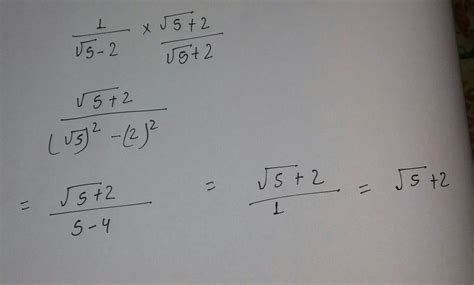 1/(√5-2) × (√5+2)/(√5+2)
(√5+2)/((√5)² - (2)²)
= (√5+2)/(5-4) = (√5+2)/1 = √5+2